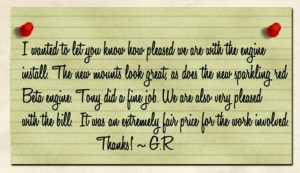 I wanted to let you know how pleased we are with the engine
install. The new mounts look great, as does the new sparkling red
Beta engine. Tony did a fine job. We are also very pleased
with the bill. It was an extremely fair price for the work involved.
Thanks! ~ G.R